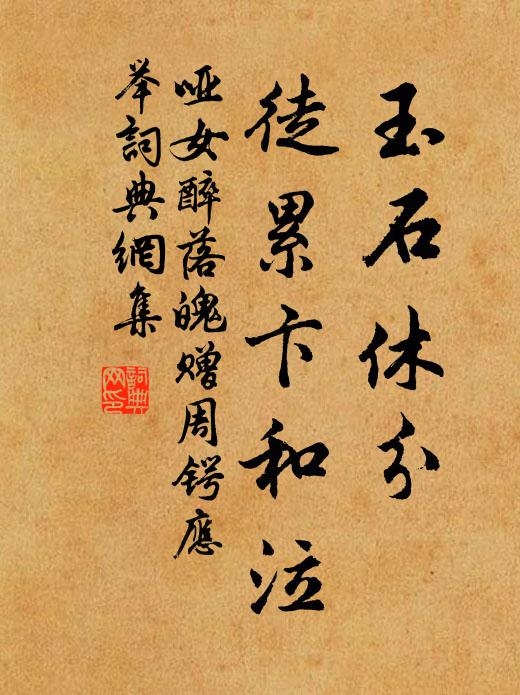 玉石休分
徒累卞和泣
哑女醉落魄赠周锷應
举詞典網集
詞典
网印